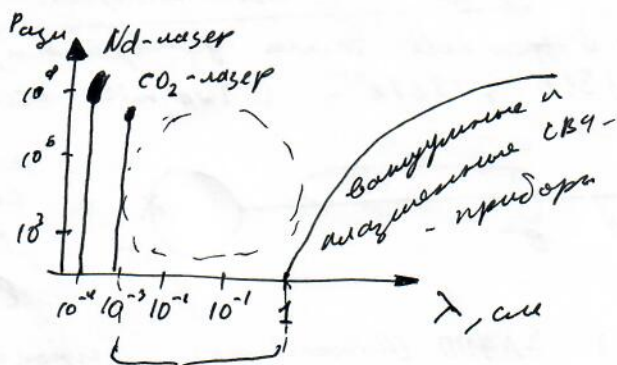 Pизл
Nd-лазер
CO₂-лазер
10⁹
10⁶
10³
вакуумные и
плазменные СВЧ-
- приборы
10⁻⁴ 10⁻³ 10⁻² 10⁻¹ 1
λ, см